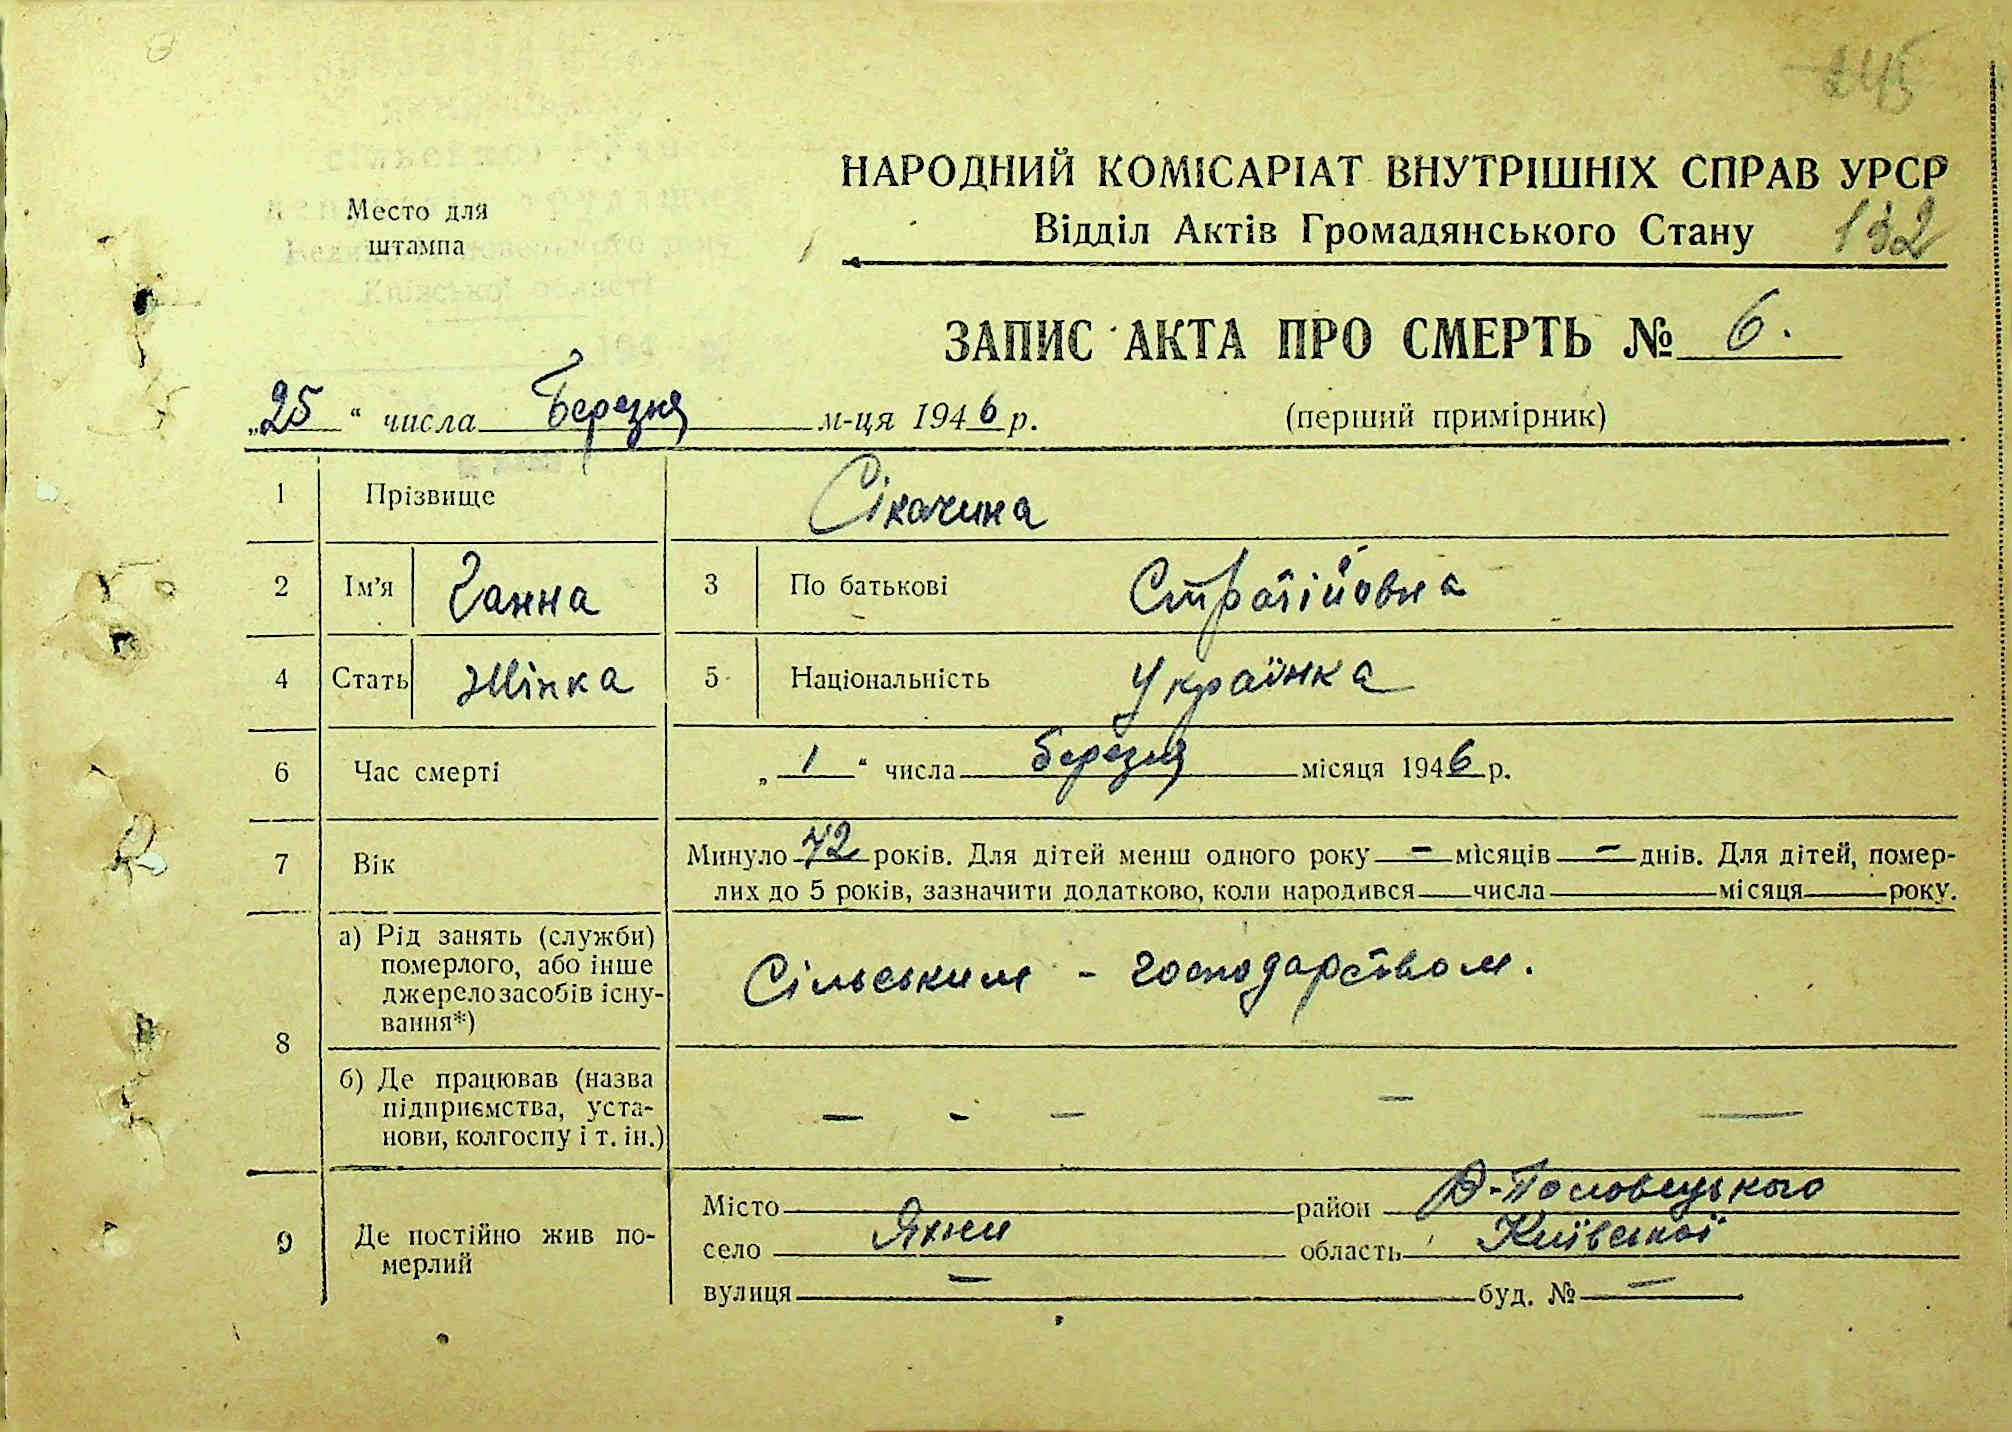 145
НАРОДНИЙ КОМІСАРІАТ ВНУТРІШНІХ СПРАВ УРСР
Відділ Актів Громадянського Стану 132
Место для
штампа
ЗАПИС АКТА ПРО СМЕРТЬ № 6.
„25“ числа Березня м-ця 1946 р.
(перший примірник)
1 Прізвище Сікачина
2 Ім'я Ганна 3 По батькові
4 Стать Жінка 5 Національність Українка
6 Час смерті „1“ числа березня місяця 1946 р.
7 Вік Минуло 72 років. Для дітей менш одного року — місяців — днів. Для дітей, помер-
лих до 5 років, зазначити додатково, коли народився числа місяця року.
8 а) Рід занять (служби)
померлого, або інше
джерело засобів існу-
вання*)
Сільським - господарством.
б) Де працював (назва
підприємства, уста-
нови, колгоспу і т. ін.)
— - — — —
9 Де постійно жив по-
мерлий
Місто район В-Половецького
село Яхни область Київської
вулиця — буд. № —